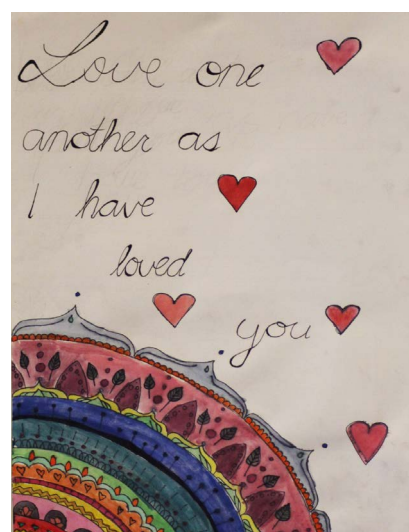 Love one
another as
I have
loved
you